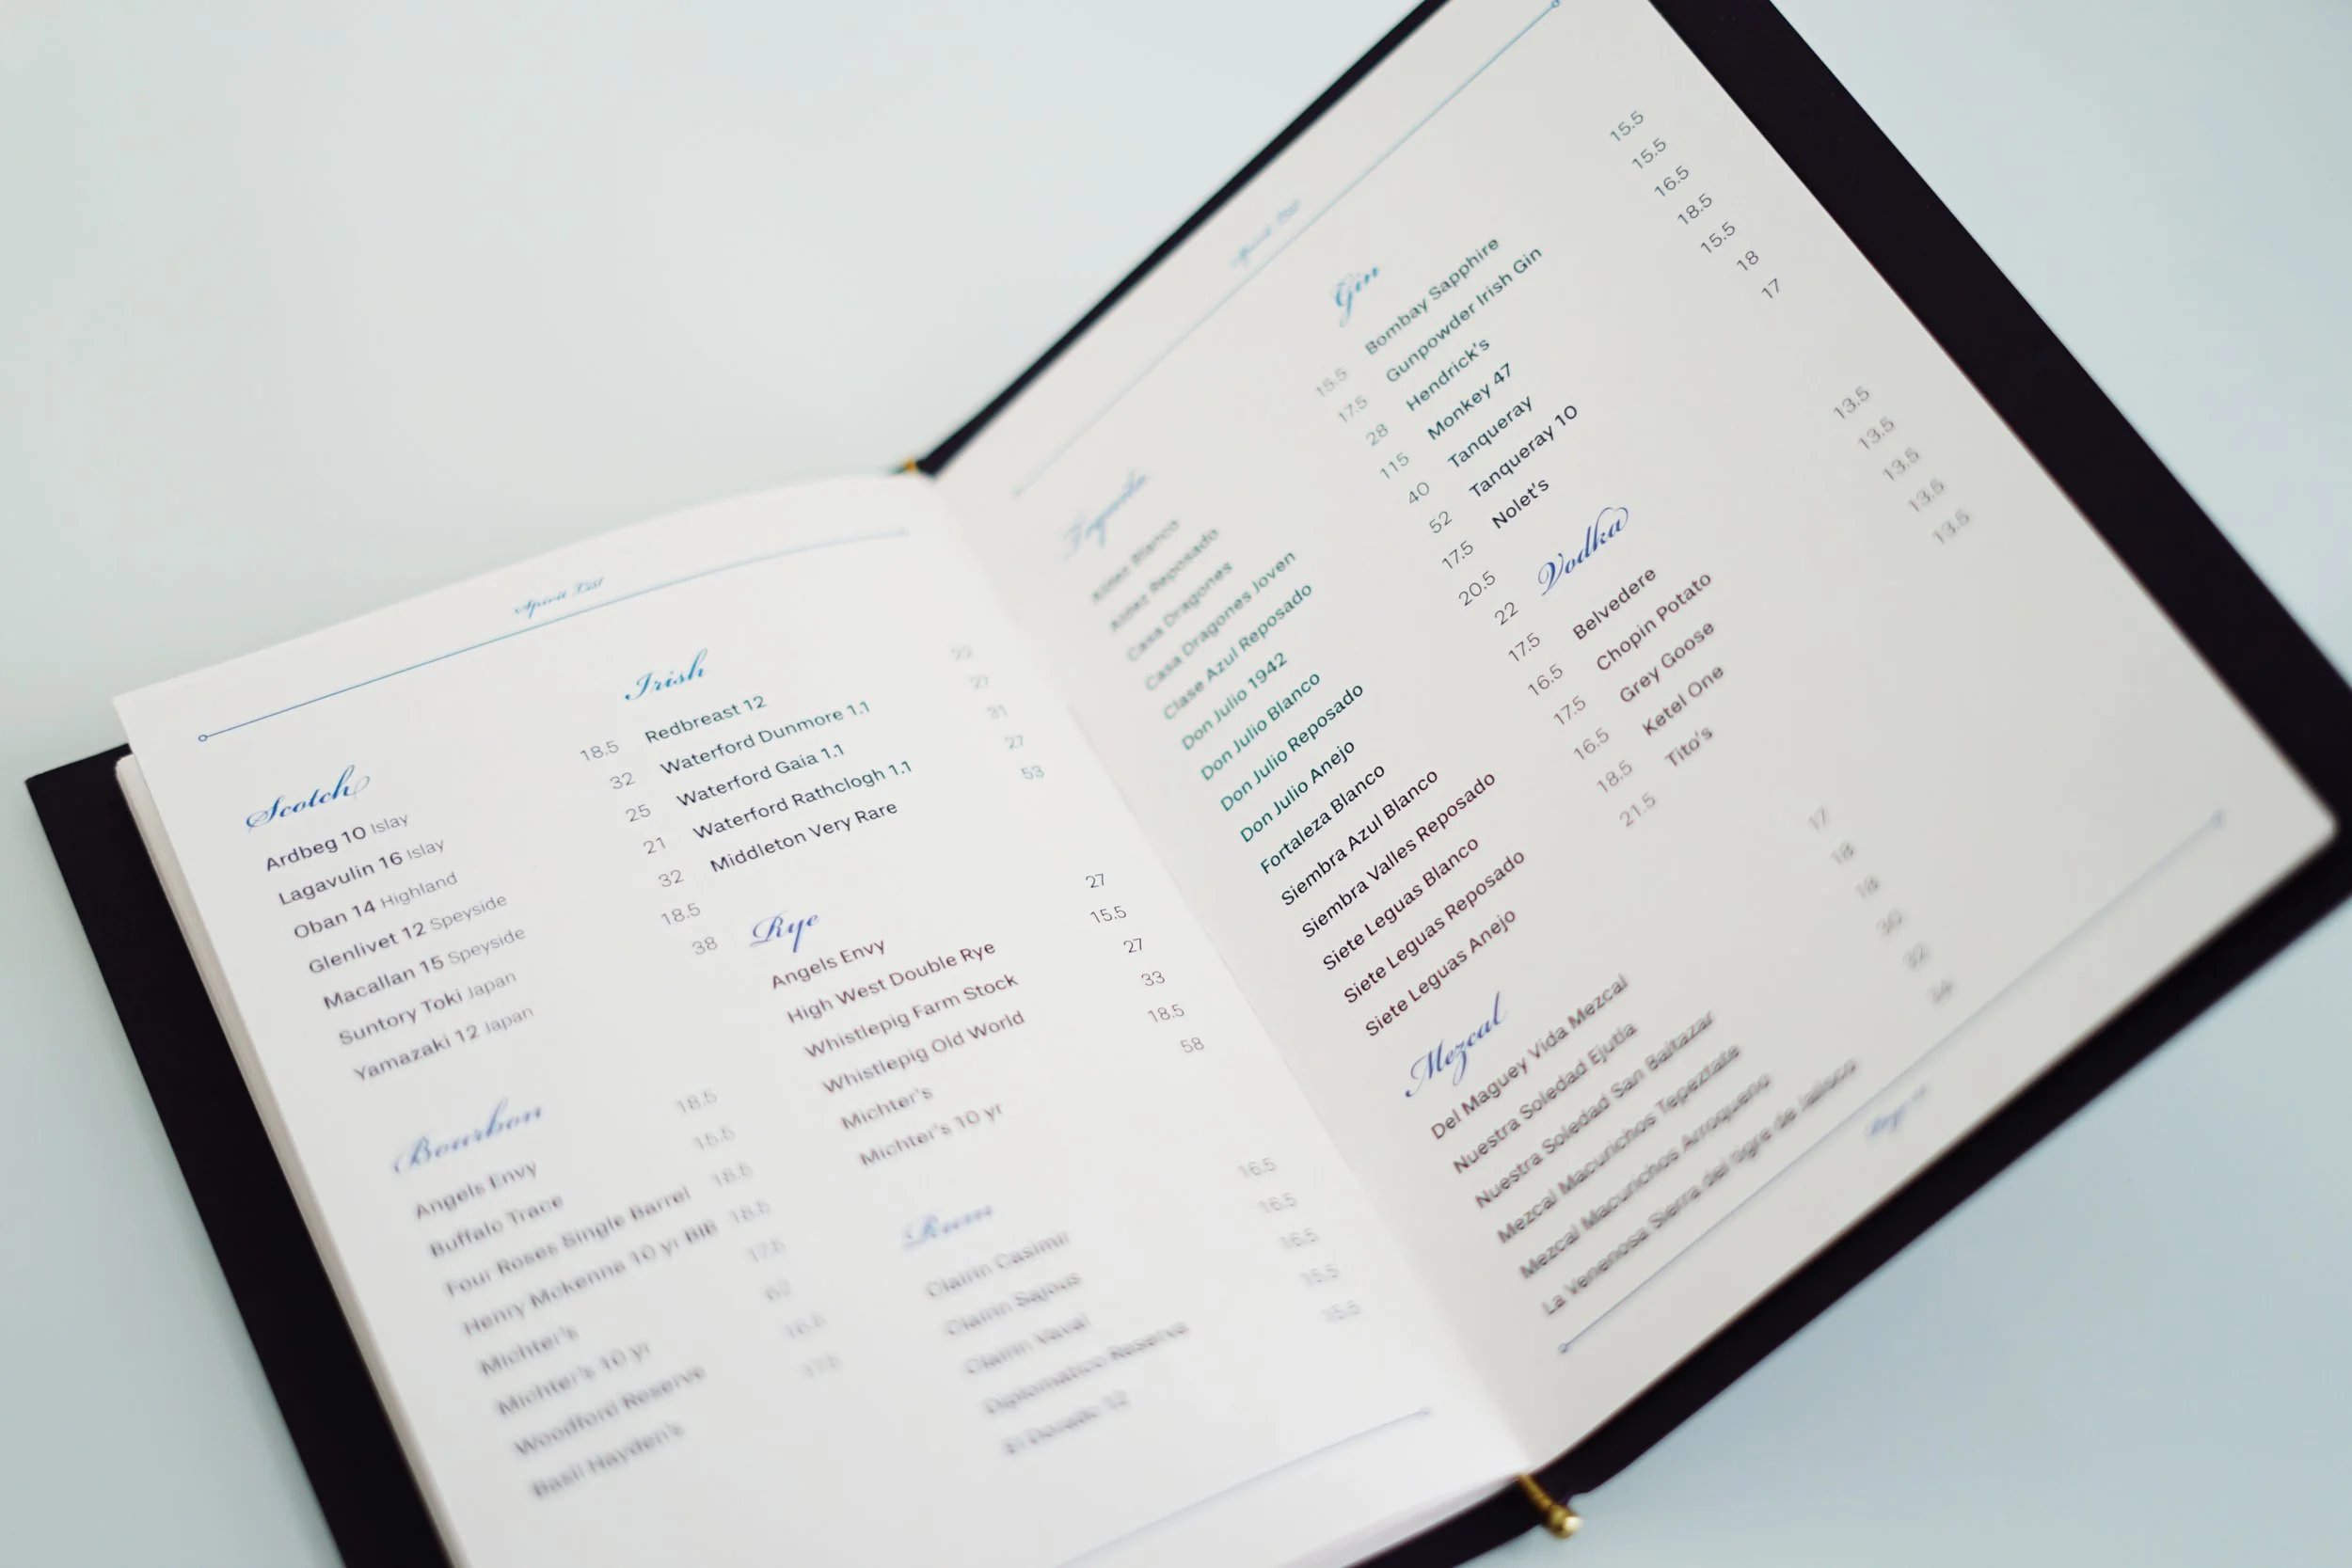 Spirit List
Scotch
Ardbeg 10 Islay 18.5
Lagavulin 16 Islay 32
Oban 14 Highland 25
Glenlivet 12 Speyside 21
Macallan 15 Speyside 32
Suntory Toki Japan 18.5
Yamazaki 12 Japan 38
Bourbon
Angels Envy 18.5
Buffalo Trace 15.5
Four Roses Single Barrel 18.5
Henry Mckenna 10 yr BIB 18.5
Michter's 17.5
Michter's 10 yr
Woodford Reserve 16.5
Basil Hayden's 17.5
Irish
Redbreast 12 22
Waterford Dunmore 1.1 27
Waterford Gaia 1.1 31
Waterford Rathclogh 1.1 27
Middleton Very Rare 53
Rye
Angels Envy 27
High West Double Rye 15.5
Whistlepig Farm Stock 27
Whistlepig Old World 33
Michter's 18.5
Michter's 10 yr 58
Rum
Clairin Casimir 16.5
Clairin Sajous 16.5
Clairin Vaval 16.5
Diplomatico Reserva 15.5
El Dorado 12 15.5
Spirit List
Tequila
Blanco 15.5
Reposado 17.5
Casa Dragones 28
Casa Dragones Joven 115
Clase Azul Reposado 40
Don Julio 1942 52
Don Julio Blanco 17.5
Don Julio Reposado 20.5
Don Julio Anejo 22
Fortaleza Blanco 17.5
Siembra Azul Blanco 16.5
Siembra Valles Reposado 17.5
Siete Leguas Blanco 16.5
Siete Leguas Reposado 18.5
Siete Leguas Anejo 21.5
Mezcal
Del Maguey Vida Mezcal 17
Nuestra Soledad Ejutla 18
Nuestra Soledad San Baltazar 18
Mezcal Macurichos Tepeztate 30
Mezcal Macurichos Arroqueno 32
La Venenosa Sierra del tigre de Jalisco
Gin
Bombay Sapphire 15.5
Gunpowder Irish Gin 15.5
Hendrick's 16.5
Monkey 47 18.5
Tanqueray 15.5
Tanqueray 10 18
Nolet's 17
Vodka
Belvedere 13.5
Chopin Potato 13.5
Grey Goose 13.5
Ketel One 13.5
Tito's 13.5